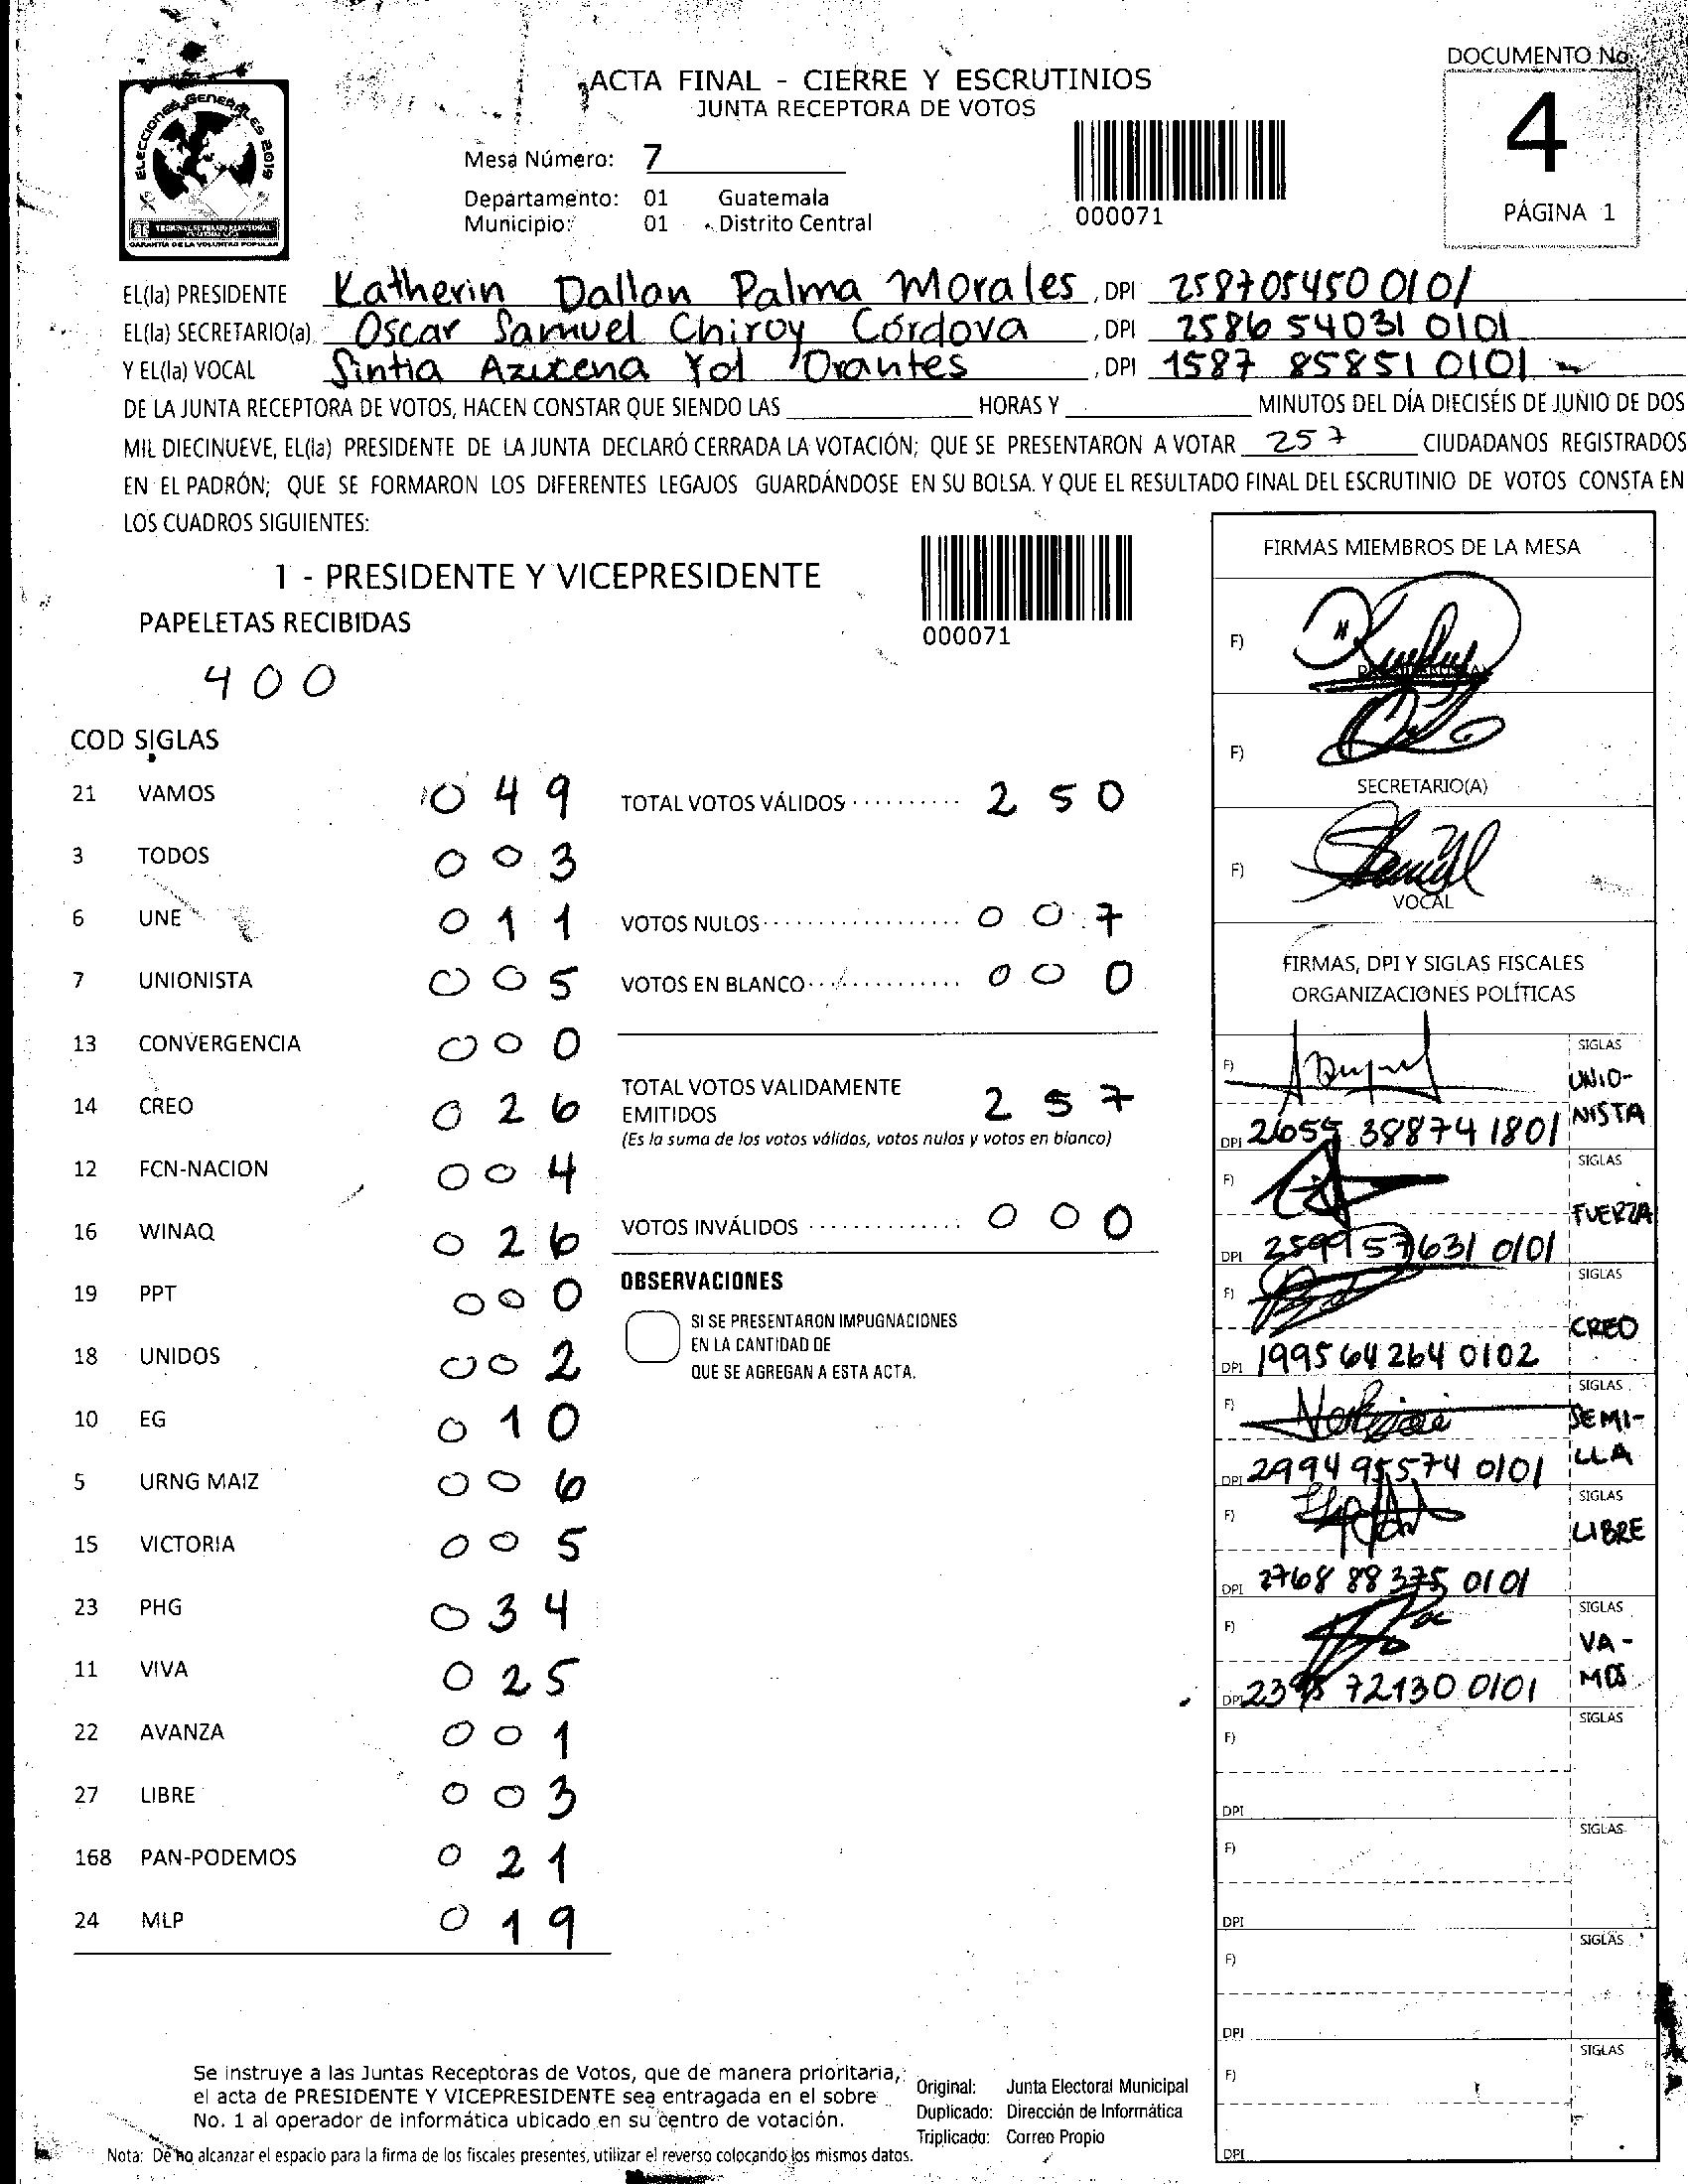 DOCUMENTO No.
ACTA FINAL - CIERRE Y ESCRUTINIOS
JUNTA RECEPTORA DE VOTOS
4
PÁGINA 1
ELECCIONES GENERALES 2019
TRIBUNAL SUPREMO ELECTORAL
GARANTIA DE LA VOLUNTAD POPULAR
Mesa Número: 7
Departamento: 01 Guatemala
Municipio: 01 Distrito Central
000071
EL(la) PRESIDENTE Katherin Dallan Palma Morales , DPI 258705450 0101
EL(la) SECRETARIO(a) Oscar Samuel Chiroy Córdova , DPI 2586 54031 0101
Y EL(la) VOCAL Sintia Azucena Yol Orantes , DPI 1587 85851 0101
DE LA JUNTA RECEPTORA DE VOTOS, HACEN CONSTAR QUE SIENDO LAS HORAS Y MINUTOS DEL DÍA DIECISÉIS DE JUNIO DE DOS
MIL DIECINUEVE, EL(la) PRESIDENTE DE LA JUNTA DECLARÓ CERRADA LA VOTACIÓN; QUE SE PRESENTARON A VOTAR 257 CIUDADANOS REGISTRADOS
EN EL PADRÓN; QUE SE FORMARON LOS DIFERENTES LEGAJOS GUARDÁNDOSE EN SU BOLSA. Y QUE EL RESULTADO FINAL DEL ESCRUTINIO DE VOTOS CONSTA EN
LOS CUADROS SIGUIENTES:
1 - PRESIDENTE Y VICEPRESIDENTE
PAPELETAS RECIBIDAS
400
000071
COD SIGLAS
21 VAMOS 049
3 TODOS 003
6 UNE 011
7 UNIONISTA 005
13 CONVERGENCIA 000
14 CREO 026
12 FCN-NACION 004
16 WINAQ 026
19 PPT 000
18 UNIDOS 002
10 EG 010
5 URNG MAIZ 006
15 VICTORIA 005
23 PHG 034
11 VIVA 025
22 AVANZA 001
27 LIBRE 003
168 PAN-PODEMOS 021
24 MLP 019
TOTAL VOTOS VÁLIDOS 250
VOTOS NULOS 007
VOTOS EN BLANCO 000
TOTAL VOTOS VALIDAMENTE
EMITIDOS 257
(Es la suma de los votos válidos, votos nulos y votos en blanco)
VOTOS INVÁLIDOS 000
OBSERVACIONES
SI SE PRESENTARON IMPUGNACIONES
EN LA CANTIDAD DE
QUE SE AGREGAN A ESTA ACTA.
FIRMAS MIEMBROS DE LA MESA
F)
F)
SECRETARIO(A)
F)
VOCAL
FIRMAS, DPI Y SIGLAS FISCALES
ORGANIZACIONES POLÍTICAS
F) SIGLAS
UNIO-
NISTA
DPI 388741801
F) SIGLAS
FUERZA
DPI 2599 57631 0101
F) SIGLAS
CREO
DPI 1995 64264 0102
F) SIGLAS
SEMI-
LLA
DPI 2994 95574 0101
F) SIGLAS
LIBRE
DPI 2768 88375 0101
F) SIGLAS
VA-
MOS
DPI 72130 0101
F) SIGLAS
DPI
F) SIGLAS
DPI
F) SIGLAS
DPI
F) SIGLAS
DPI
Se instruye a las Juntas Receptoras de Votos, que de manera prioritaria,
el acta de PRESIDENTE Y VICEPRESIDENTE sea entragada en el sobre
No. 1 al operador de informática ubicado en su centro de votación.
Original: Junta Electoral Municipal
Duplicado: Dirección de Informática
Triplicado: Correo Propio
Nota: De no alcanzar el espacio para la firma de los fiscales presentes, utilizar el reverso colocando los mismos datos.